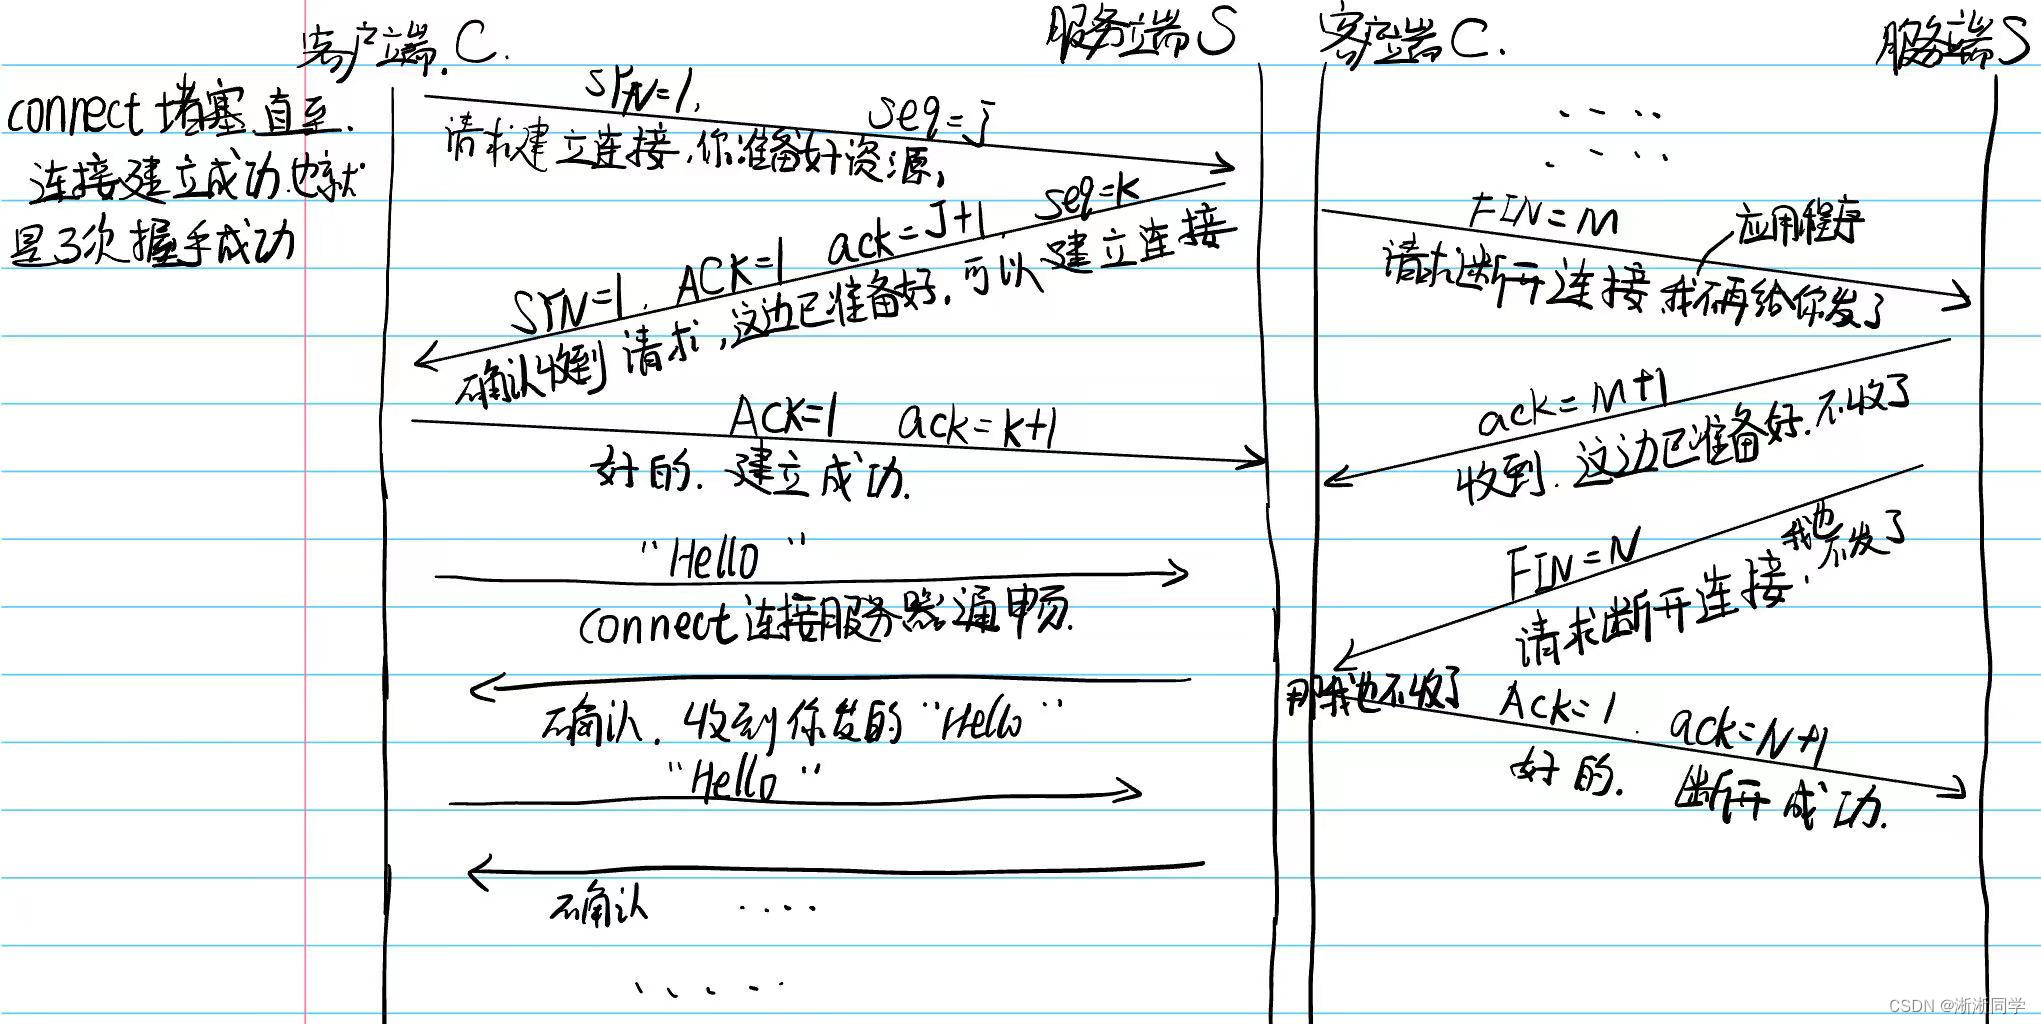 客户端.C.
服务端S
connect堵塞直至.
连接建立成功.也就
是3次握手成功
SYN=1, seq=j
请求建立连接,你准备好资源,
SYN=1. ACK=1 ack=J+1. seq=K
确认收到请求,这边已准备好,可以建立连接
ACK=1 ack=k+1
好的.建立成功.
"Hello"
connect连接服务器通畅.
确认.收到你发的"Hello"
"Hello"
确认 ....
.....
客户端C.
服务端S
....
....
FIN=M
应用程序
请求断开连接,我不再给你发了
ack=M+1
收到.这边已准备好.不收了
FIN=N
请求断开连接,我也不发了
那我也不收了
ACK=1. ack=N+1
好的. 断开成功.
CSDN @淅淅同学